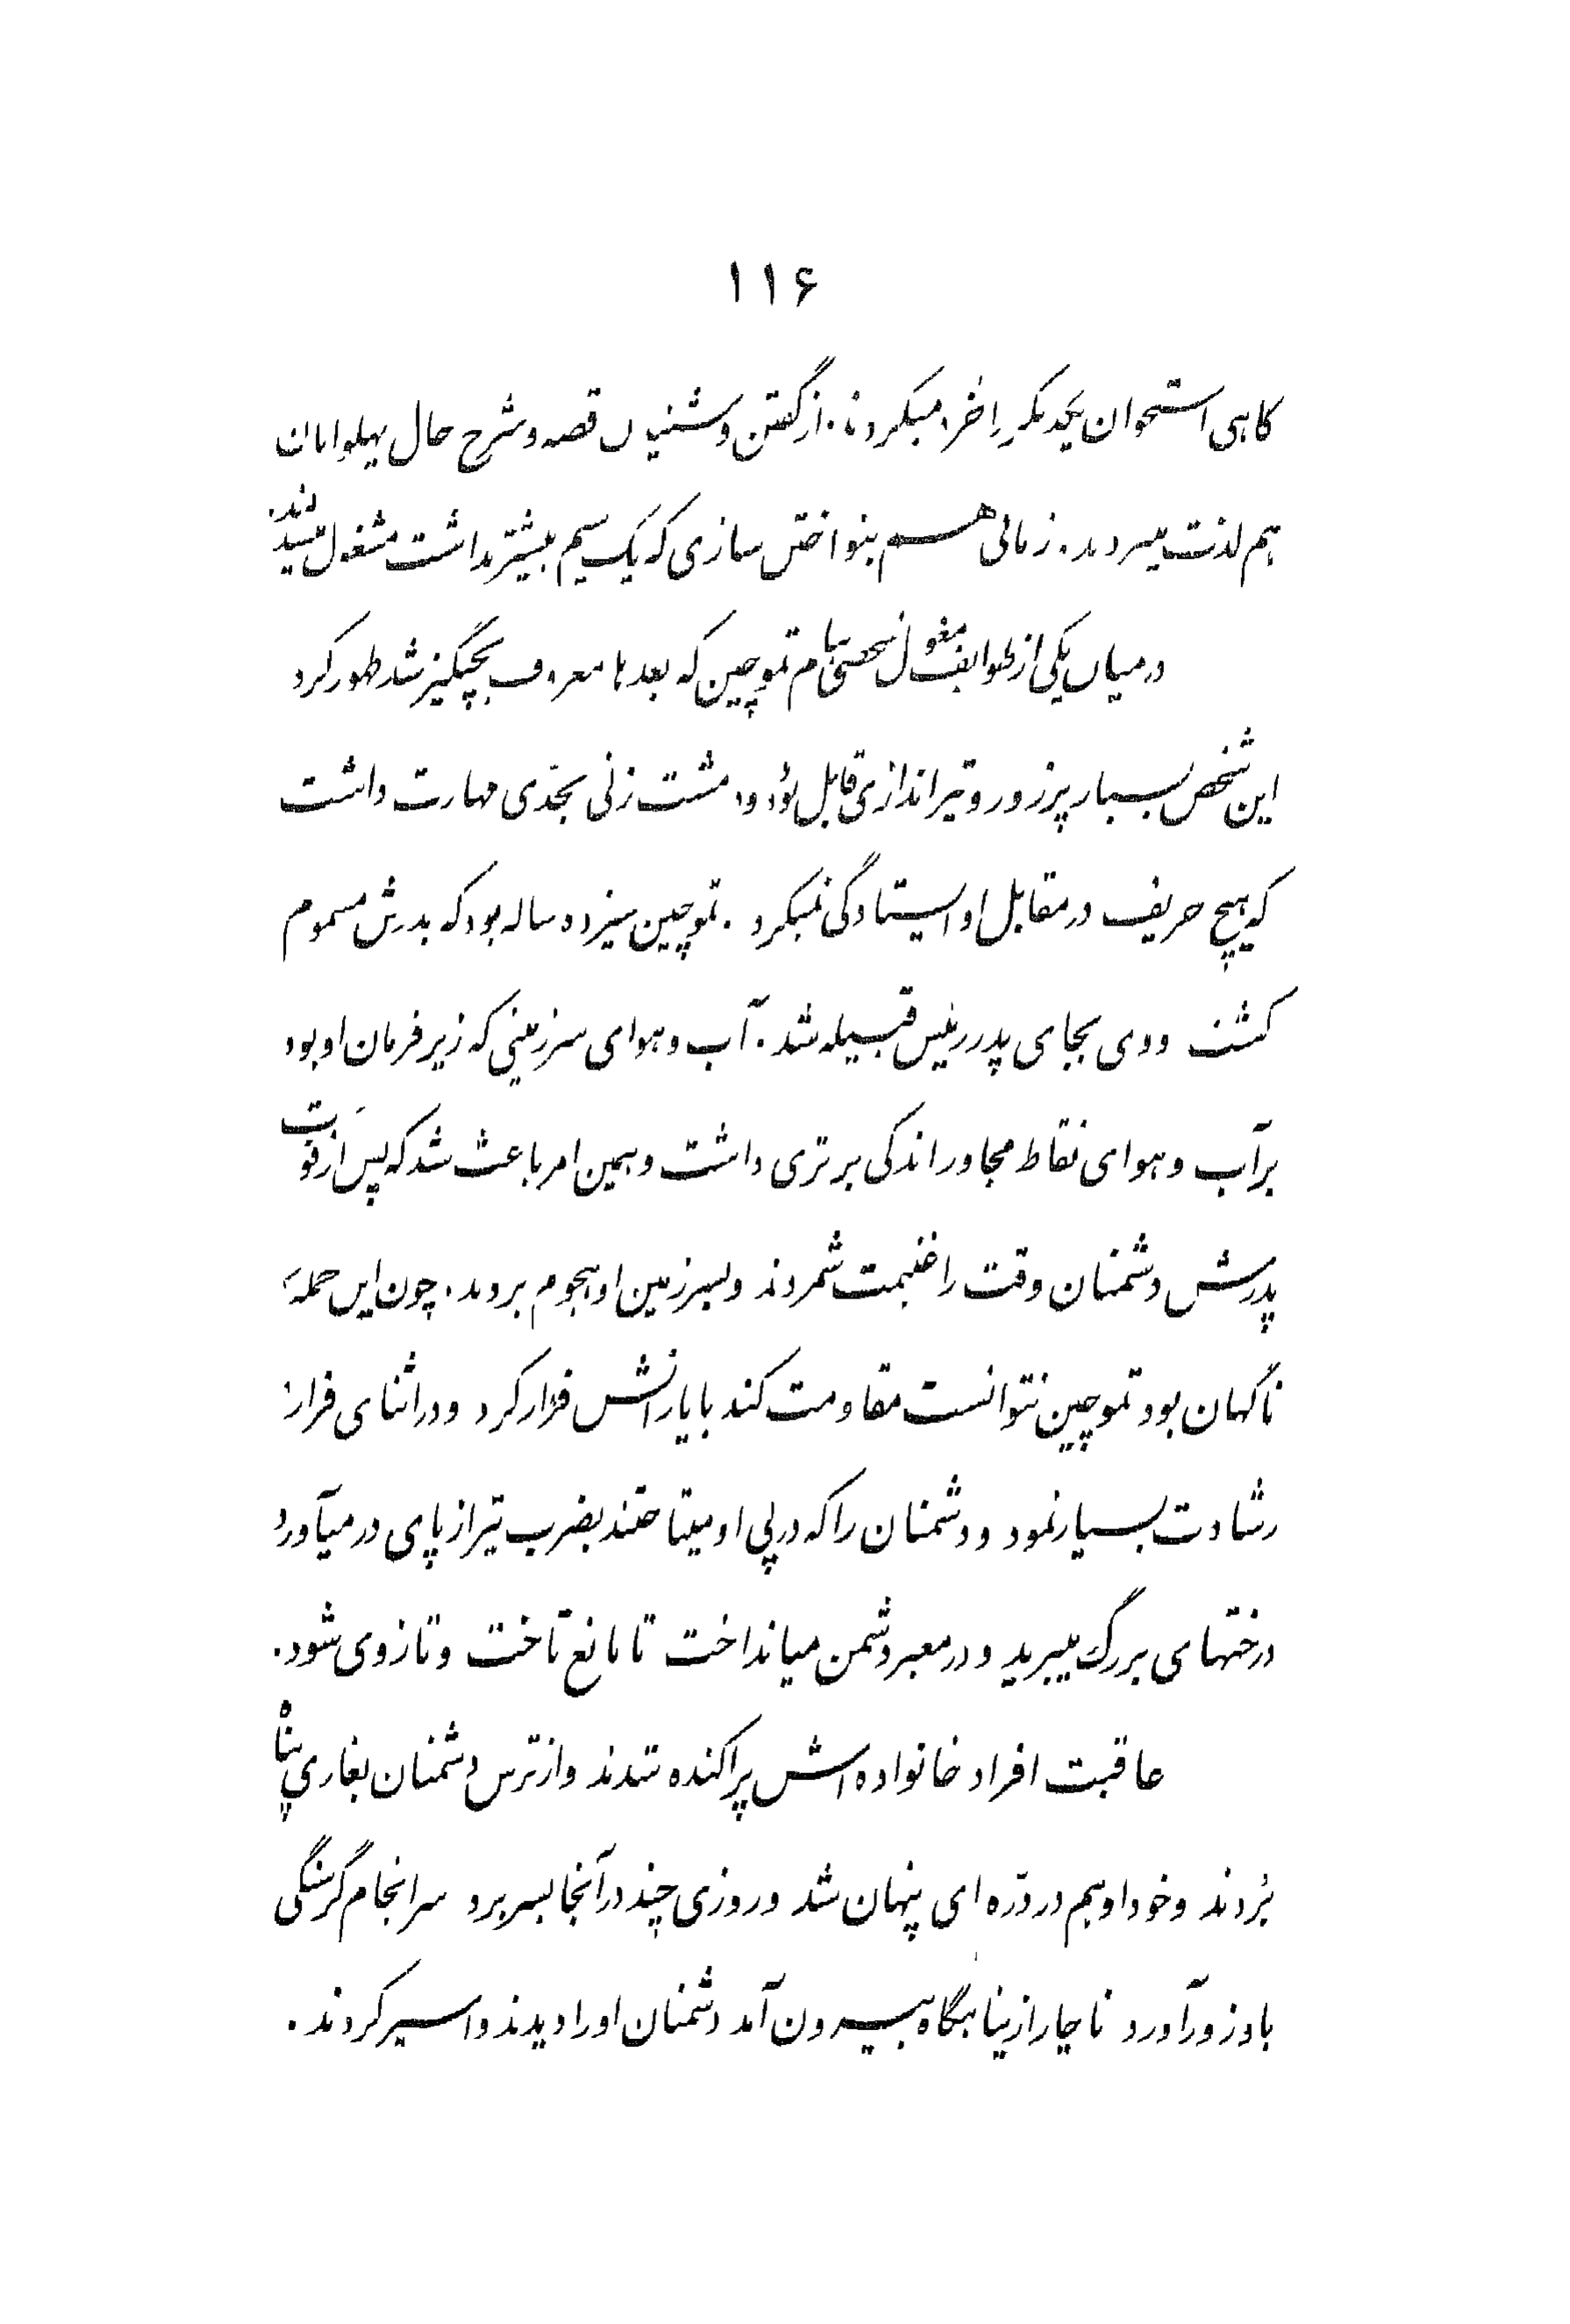 ۱۱۶
گاهی استخوان یکدیگر را خرد میکردند. از گفتن و شنیدن قصه و شرح حال پهلوانان
هم لذت میبردند. زمانی هم بنواختن سازی که یک سیم بیشتر نداشت مشغول میشدند.
در میان یکی از طوایف مغول شخصی بنام تموچین که بعدها معروف بچنگیز شد ظهور کرد
این شخص بسیار پرزور و تیراندازی قابل بود و در مشت زنی بحدّی مهارت داشت
که هیچ حریف در مقابل او ایستادگی نمیکرد. تموچین سیزده ساله بود که پدرش مسموم
گشت و وی بجای پدر رئیس قبیله شد. آب و هوای سرزمینی که زیر فرمان او بود
بر آب و هوای نقاط مجاور اندکی برتری داشت و همین امر باعث شد که پس از فوت
پدرش دشمنان وقت را غنیمت شمردند و بسرزمین او هجوم بردند. چون این حملهٔ
ناگهان بود تموچین نتوانست مقاومت کند با یارانش فرار کرد و در اثنای فرار
رشادت بسیار نمود و دشمنان را که در پی او میتاختند بضرب تیر از پای در میآورد
درختهای بزرگ میبرید و در معبر دشمن میانداخت تا مانع تاخت و تاز وی شود.
عاقبت افراد خانواده اش پراکنده شدند و از ترس دشمنان بغاری پناه
بردند و خود او هم در درّه ای پنهان شد و روزی چند در آنجا بسر برد سرانجام گرسنگی
باو زور آورد ناچار از پناهگاه بیرون آمد دشمنان او را دیدند و اسیر کردند.